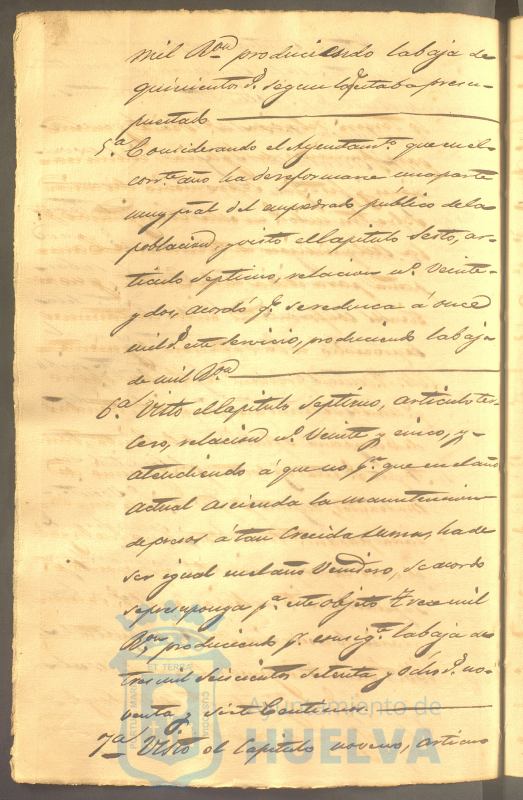 mil Ron produciendo la baja de
quinientos rs. segun lo qe. estaba presu-
puestado
5.a Considerando el Ayuntamto. que en el
corrte. año ha de reformarse una parte
muy pral del empedrado público de la
poblacion, y visto el Capitulo Sesto, ar-
ticulo septimo, relacion no. Veinte
y dos, acordó qe. se reduzca á once
mil rs. este servicio, produciendo la baja
de mil Ron
6.a Visto el Capitulo Septimo, articulo ter-
cero, relacion no. Veinte y cinco, y
atendiendo á que no pr. que en el año
actual ascienda la manutencion
de presos á tan crecida suma, ha de
ser igual en el año Venidero, se acordó
se presuponga pa. este objeto trece mil
Ron, produciendo pr. consigte. la baja de
tres mil seiscientos setenta y ocho rs. no-
venta y siete Centimos
7.a Visto el Capitulo noveno, articulo
Ayuntamiento de
HUELVA